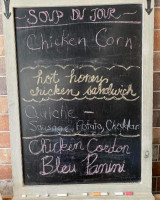 SOUP DU JOUR
Chicken Corn
hot honey
chicken sandwich
Quiche -
Sausage, Potato, Cheddar
Chicken Cordon
Bleu Panini